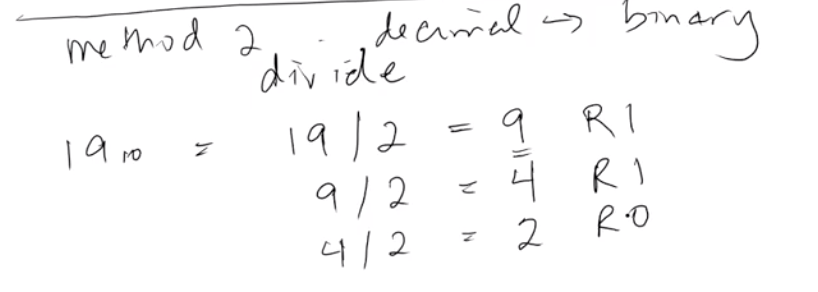 method 2 decimal → binary
divide
19₁₀ = 19/2 = 9 R1
9/2 = 4 R1
4/2 = 2 R0